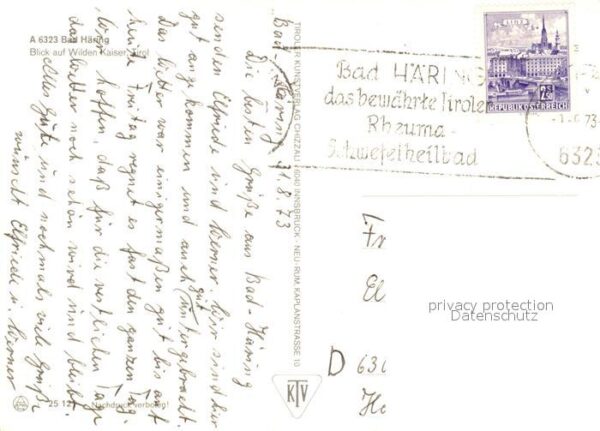 A 6323 Bad Häring
Blick auf Wilden Kaiser, Tirol
Bad-Häring, 31.8.73
Die besten Grüße aus Bad-Häring
senden Elfriede und Werner. Wir sind hier
gut angekommen und auch gut untergebracht.
Das Wetter war einigermaßen gut bis auf
heute Freitag regnet es fast den ganzen Tag.
Wir hoffen, daß für die restlichen Tage
das Wetter noch schön wird und bleibt.
Alles Gute und nochmals viele Grüße
wünscht Elfriede u. Werner
25 12
Nachdruck verboten!
TIROLER KUNSTVERLAG CHIZZALI · 6040 INNSBRUCK - NEU-RUM, KAPLANSTRASSE 10
KTV
LINZ
2.50
REPUBLIK ÖSTERREICH
Bad HÄRING
das bewährte Tiroler
Rheuma-
Schwefelheilbad
73
6323
Fr
El
D 630
Ho
privacy protection
Datenschutz